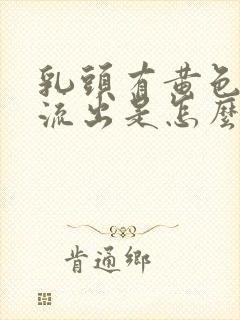 乳頭有黃色
流出是怎麼
肯通鄉